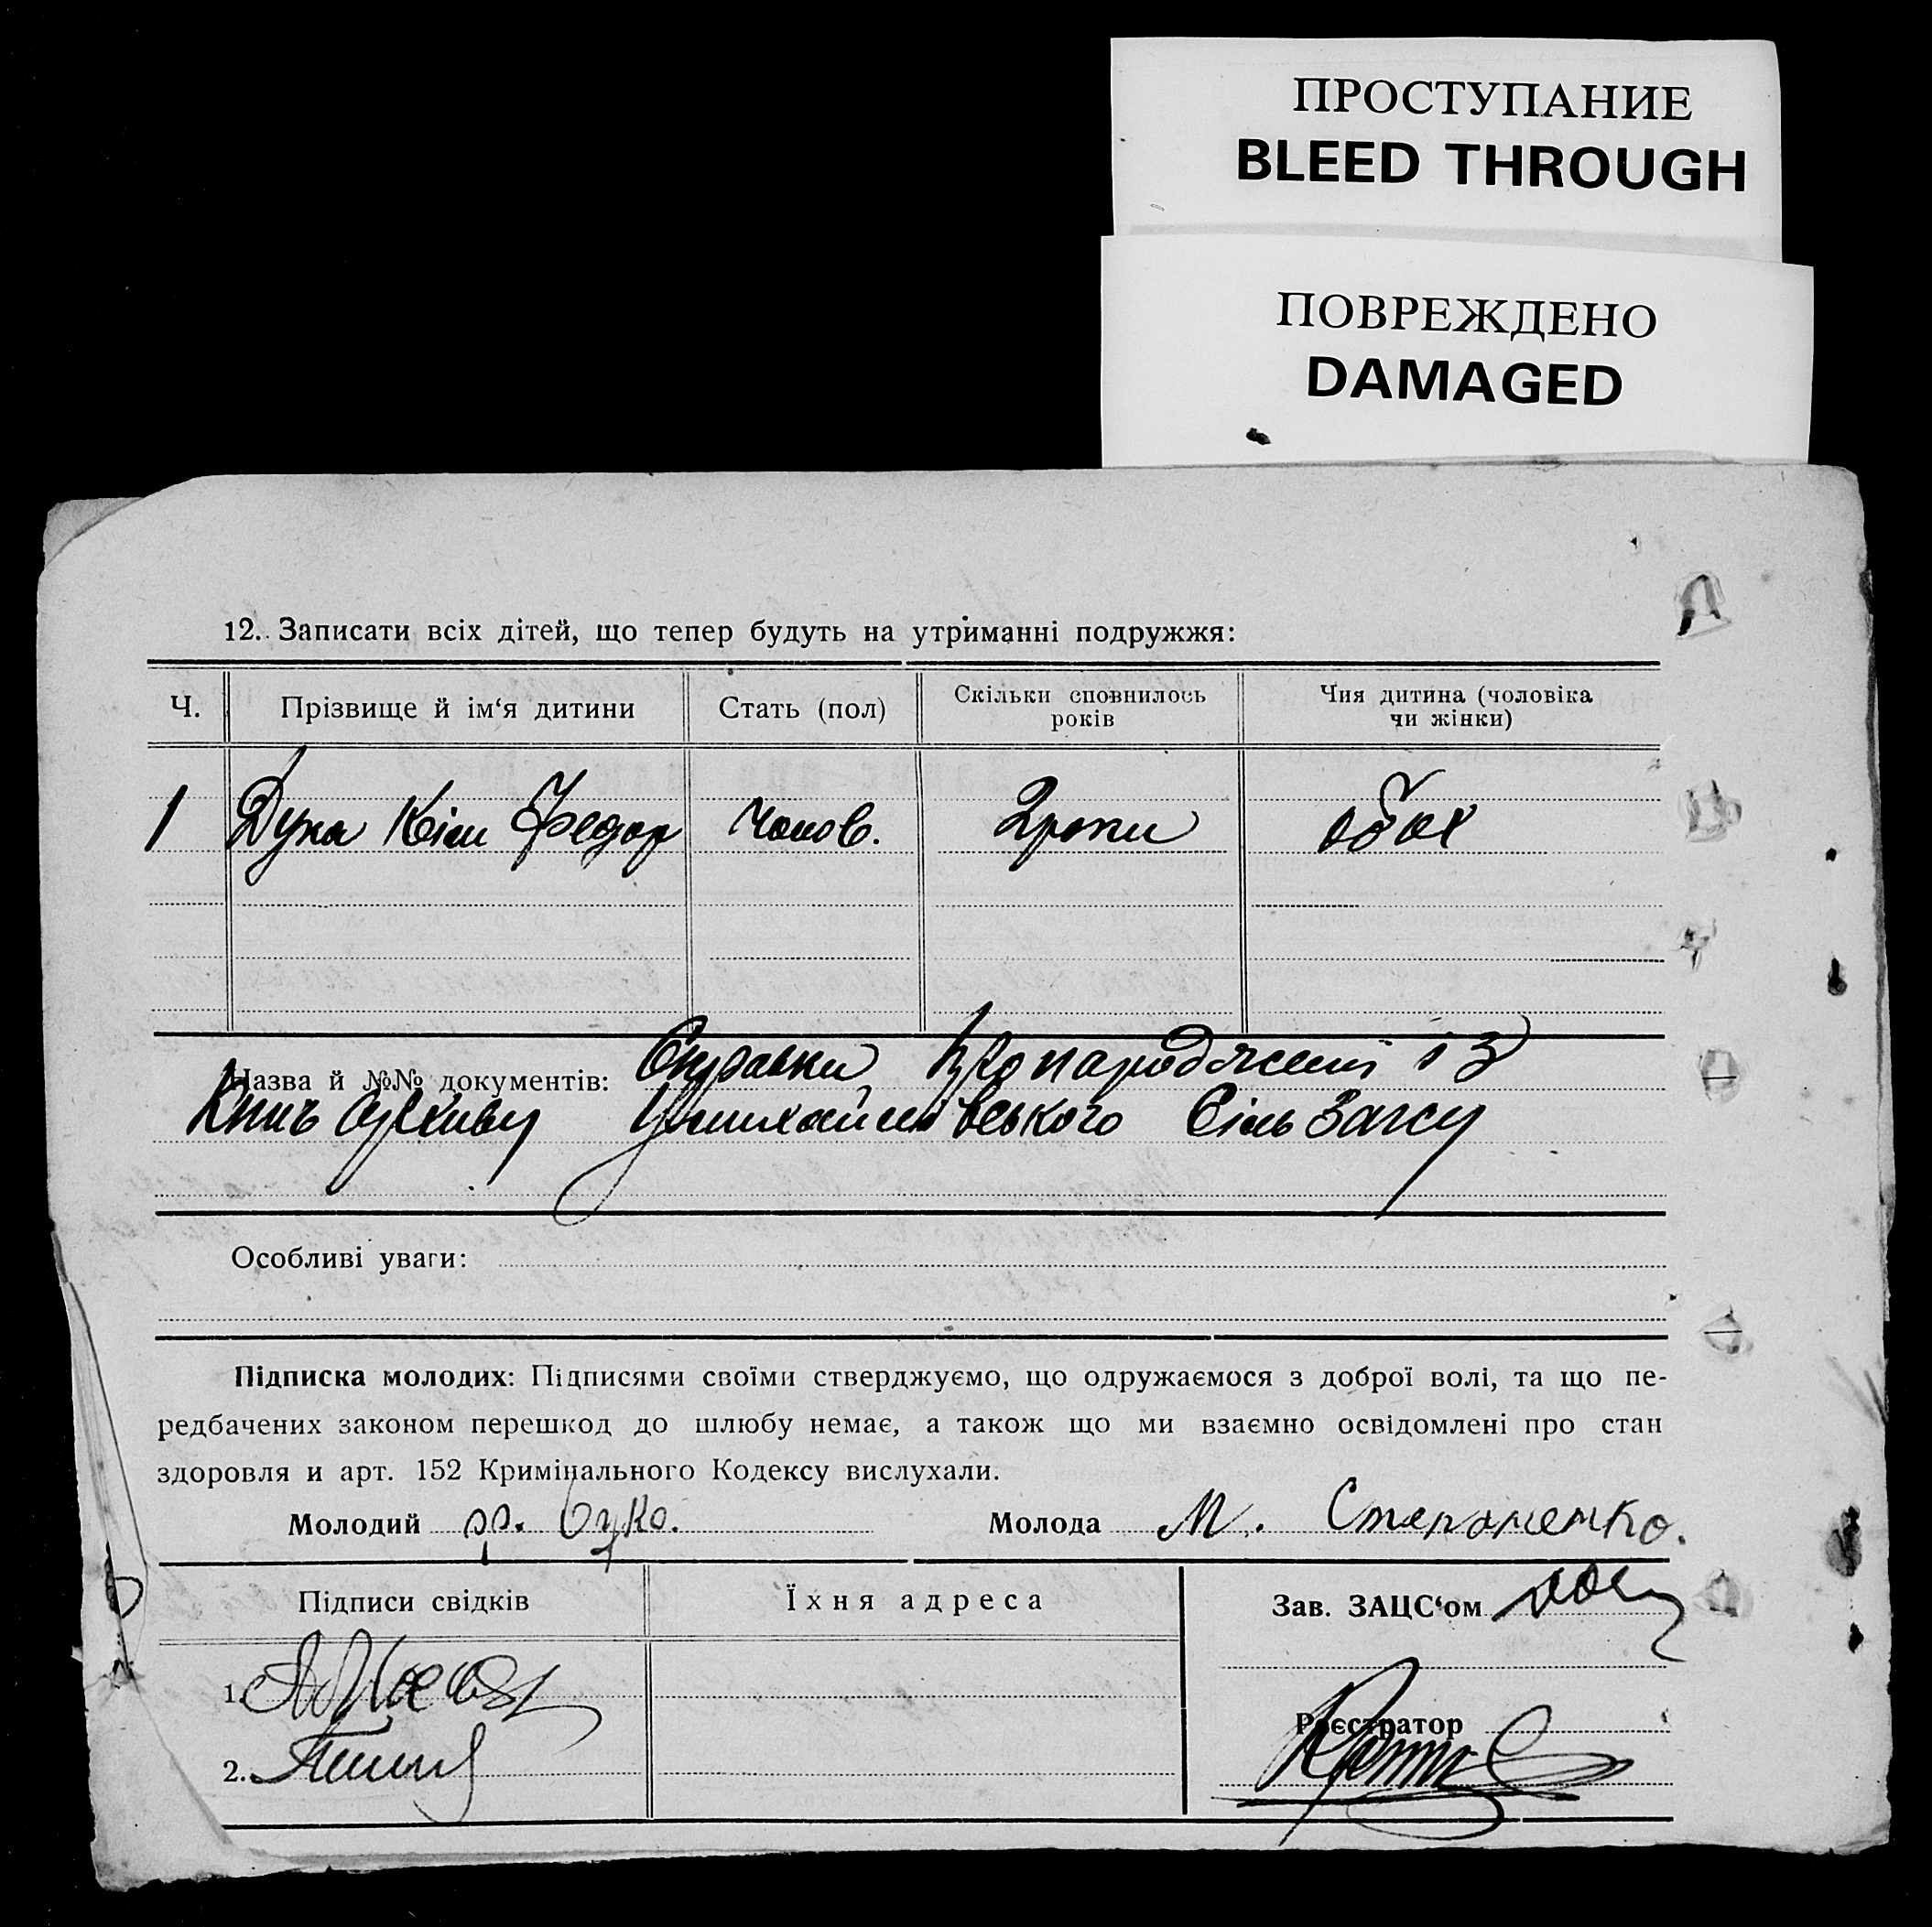 ПРОСТУПАНИЕ
BLEED THROUGH
ПОВРЕЖДЕНО
DAMAGED
12. Записати всіх дітей, що тепер будуть на утриманні подружжя:
Ч. Прізвище й ім‘я дитини Стать (пол) Скільки сповнилось років Чия дитина (чоловіка чи жінки)
1 Дука Кім Федор чолов. 2 роки обох
Назва й №№ документів: Справки про народження із
книг архиву Михайлівського Сіль Загсу
Особливі уваги:
Підписка молодих: Підписями своїми стверджуємо, що одружаємося з доброї волі, та що пе-
редбачених законом перешкод до шлюбу немає, а також що ми взаємно освідомлені про стан
здоровля и арт. 152 Кримінального Кодексу вислухали.
Молодий Молода М. Степаненко.
Підписи свідків Їхня адреса Зав. ЗАЦС‘ом
1.
Реєстратор
2.